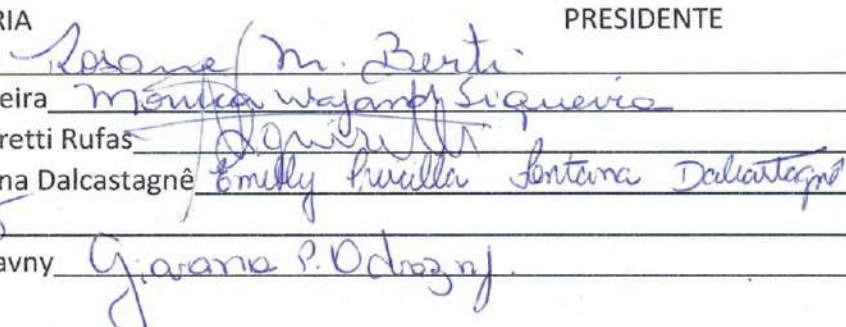 RIA PRESIDENTE
Rosane M. Berti
eira Monica Wajand Siqueira
retti Rufas
na Dalcastagnê Emilly Priscilla Fontana Dalcastagnê
avny Giovana P. Odrozny.